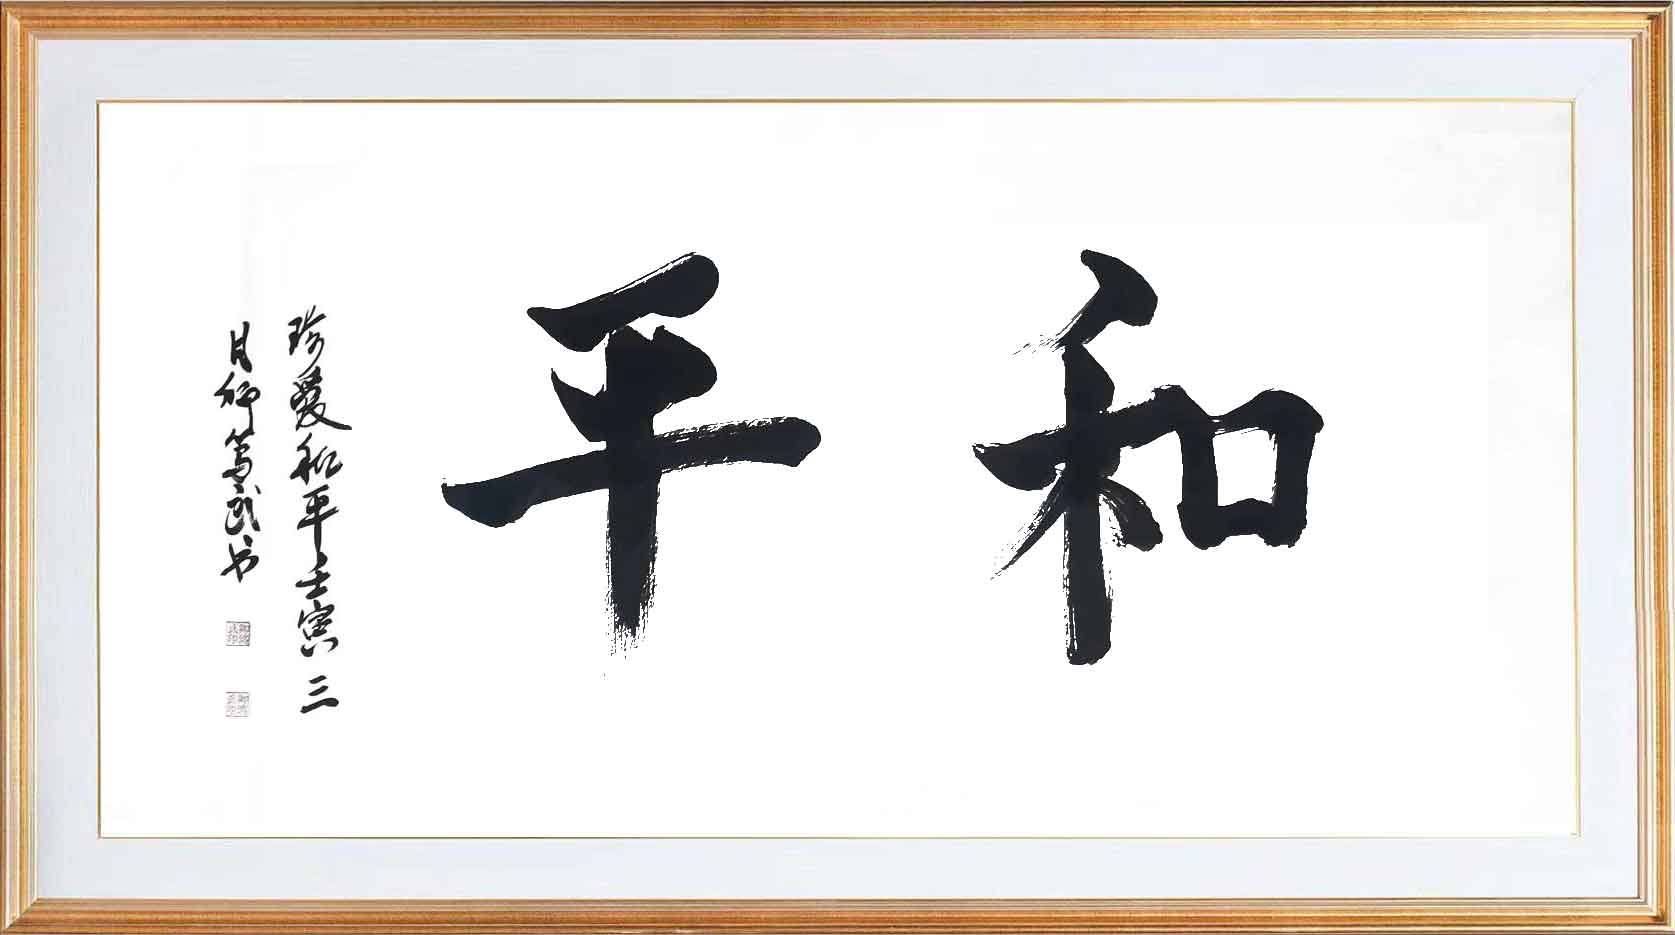 和平
珍爱和平壬寅三
月柳笃武书